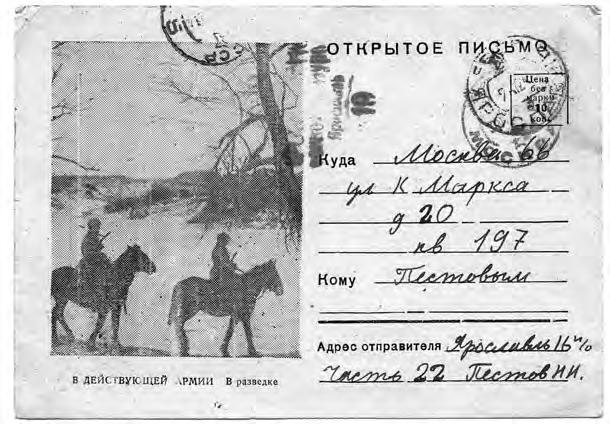 ОТКРЫТОЕ ПИСЬМО
СССР
Цена
без
марки
10
коп.
Ярославль
19
Куда Москва 66
ул К Маркса
д 20
кв 197
Кому Пестовым
Адрес отправителя Ярославль 16 п/о
Часть 22 Пестов Н.И.
В ДЕЙСТВУЮЩЕЙ АРМИИ В разведке